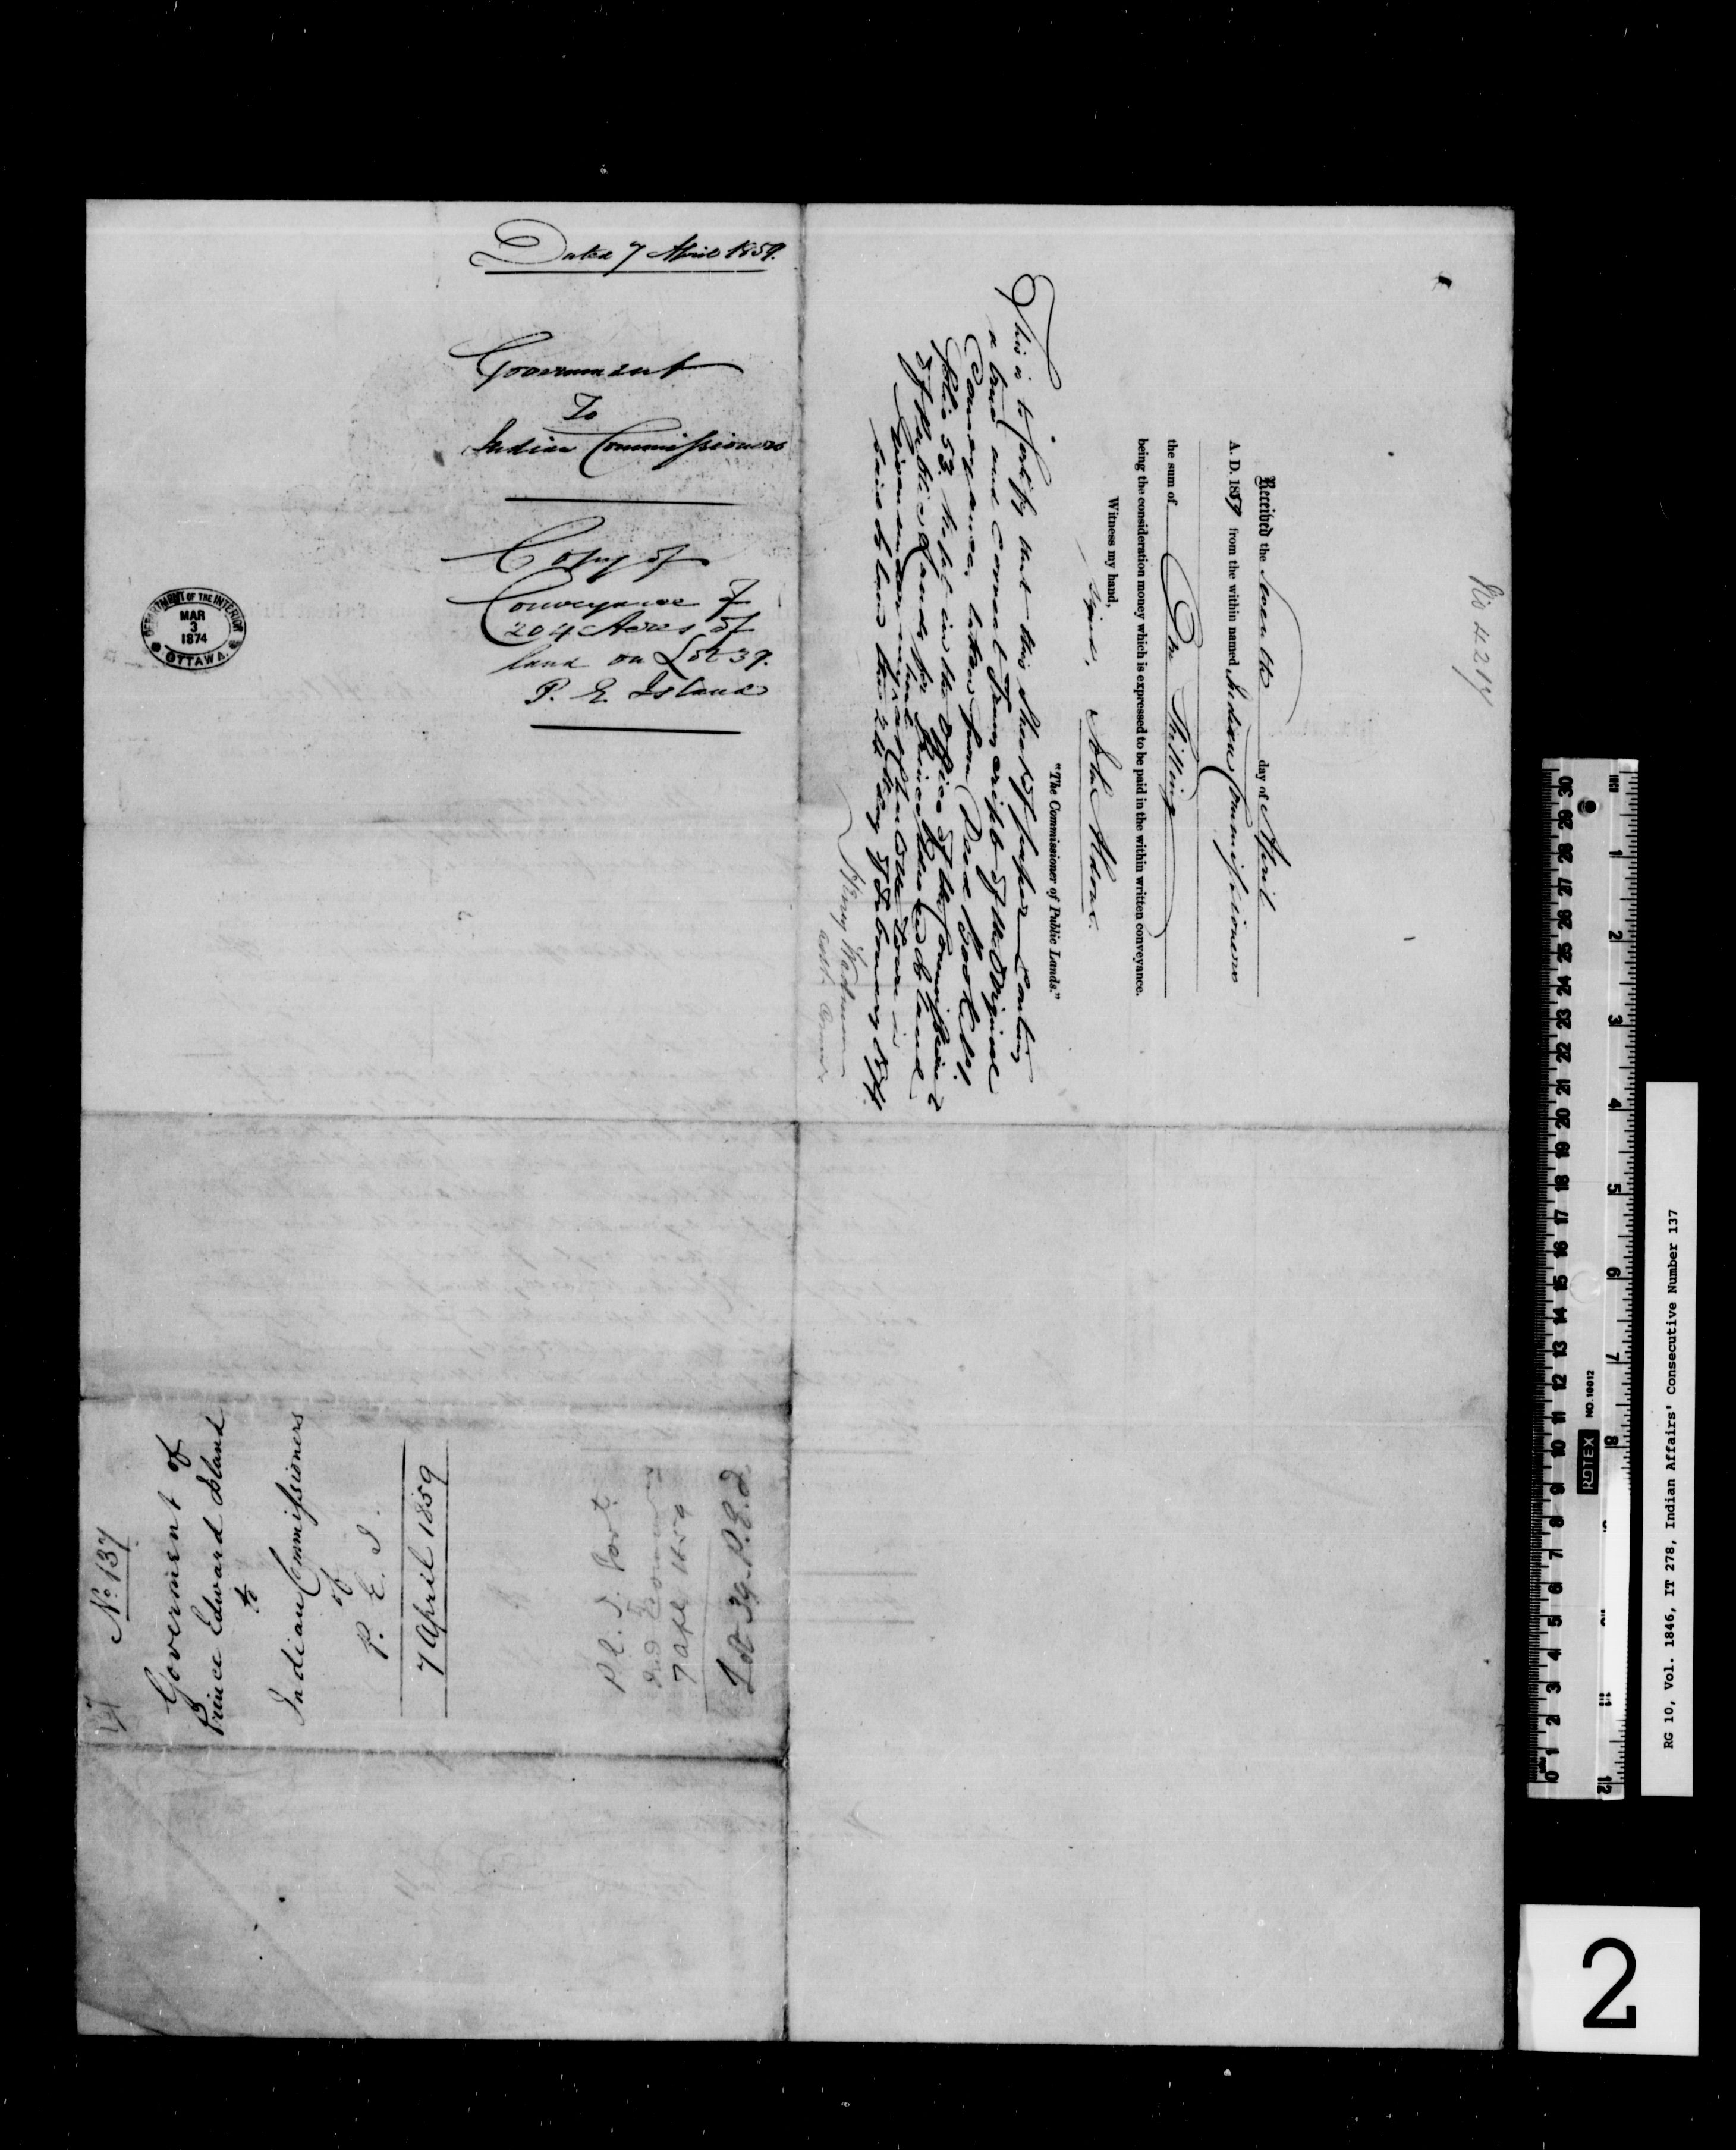 Dated 7 April 1859.
Government
To
Indian Commissioners
Copy of
Conveyance of
204 Acres of
land on Lot 39.
P. E. Island
DEPARTMENT OF THE INTERIOR
MAR
3
1874
OTTAWA.
No 4214
Received the Seventh day of April
A. D. 1859 from the within named Indian Commissioners
the sum of One Shilling
being the consideration money which is expressed to be paid in the within written conveyance.
Witness my hand,
Signed, John Aldous.
"The Commissioner of Public Lands."
This is to Certify that this Sheet of paper Contains
a true and Correct Transcript of the Original
Conveyance, taken from Deed Book No 1
folio 53. kept in the Office of the Commissioner
of Public Lands for Prince Edward Island
Given under my hand at Charlotte Town in
said Island this 24th day of February 1874.
Henry
Asst. Comr
No. 137
Government of
Prince Edward Island
to
Indian Commissioners
of
P. E. I.
7 April 1859
P. E. I. Govt.
Ind
7 Apl 1859
Lot 39. P.E.I
NO. 10012
ROTEX
RG 10, Vol. 1846, IT 278, Indian Affairs' Consecutive Number 137
2